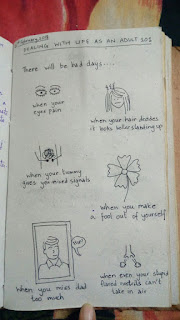 DEALING WITH LIFE AS AN ADULT 101
There will be bad days....
when your
eyes pain
when your hair decides
it looks better standing up
when your tummy
gives you mixed signals
when you make
a fool out of yourself
when you miss dad
too much
when even your stupid
flared nostrils can't
take in air